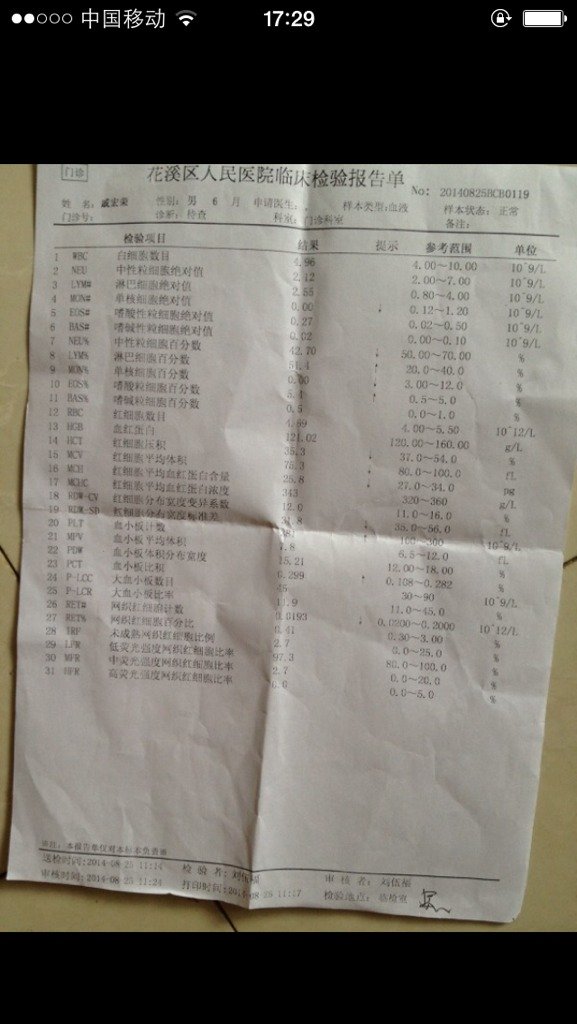 中国移动 17:29
门诊
花溪区人民医院临床检验报告单
No: 20140825BCB0119
姓 名: 性别: 男 6 月 申请医生: 样本类型:血液 样本状态: 正常
门诊号: 诊断: 待查 科室: 门诊科室 备注:
检验项目 结果 提示 参考范围 单位
1 WBC 白细胞数目 4.96 4.00~10.00 10^9/L
2 NEU 中性粒细胞绝对值 2.12 2.00~7.00 10^9/L
3 LYM# 淋巴细胞绝对值 2.55 0.80~4.00 10^9/L
4 MON# 单核细胞绝对值 0.00 ↓ 0.12~1.20 10^9/L
5 EOS# 嗜酸性粒细胞绝对值 0.27 0.02~0.50 10^9/L
6 BAS# 嗜碱性粒细胞绝对值 0.02 0.00~0.10 10^9/L
7 NEU% 中性粒细胞百分数 42.70 ↓ 50.00~70.00 %
8 LYM% 淋巴细胞百分数 51.4 ↑ 20.0~40.0 %
9 MON% 单核细胞百分数 0.00 ↓ 3.00~12.0 %
10 EOS% 嗜酸粒细胞百分数 5.4 ↑ 0.5~5.0 %
11 BAS% 嗜碱粒细胞百分数 0.5 0.0~1.0 %
12 RBC 红细胞数目 4.69 4.00~5.50 10^12/L
13 HGB 血红蛋白 121.02 120.00~160.00 g/L
14 HCT 红细胞压积 35.3 ↓ 37.0~54.0 %
15 MCV 红细胞平均体积 75.3 ↓ 80.0~100.0 fL
16 MCH 红细胞平均血红蛋白含量 25.8 ↓ 27.0~34.0 pg
17 MCHC 红细胞平均血红蛋白浓度 343 320~360 g/L
18 RDW-CV 红细胞分布宽度变异系数 12.0 11.0~16.0 %
19 RDW-SD 红细胞分布宽度标准差 31.8 ↓ 35.0~56.0 fL
20 PLT 血小板计数 381 ↑ 100~300 10^9/L
21 MPV 血小板平均体积 7.8 6.5~12.0 fL
22 PDW 血小板体积分布宽度 15.21 12.00~18.00 %
23 PCT 血小板比积 0.299 ↑ 0.108~0.282 %
24 P-LCC 大血小板数目 45 30~90 10^9/L
25 P-LCR 大血小板比率 11.9 11.0~45.0 %
26 RET# 网织红细胞计数 0.0193 ↓ 0.0200~0.2000 10^12/L
27 RET% 网织红细胞百分比 0.41 0.30~3.00 %
28 IRF 未成熟网织红细胞比例 2.7 0.0~25.0 %
29 LFR 低荧光强度网织红细胞比率 97.3 80.0~100.0 %
30 MFR 中荧光强度网织红细胞比率 2.7 0.0~20.0 %
31 HFR 高荧光强度网织红细胞比率 0.0 0.0~5.0 %
备注: 本报告单仅对本标本负责※
送检时间:2014-08-25 11:14 检 验 者: 审 核 者:
审核时间:2014-08-25 11:24 打印时间:2014-08-25 检验地点: 临检室